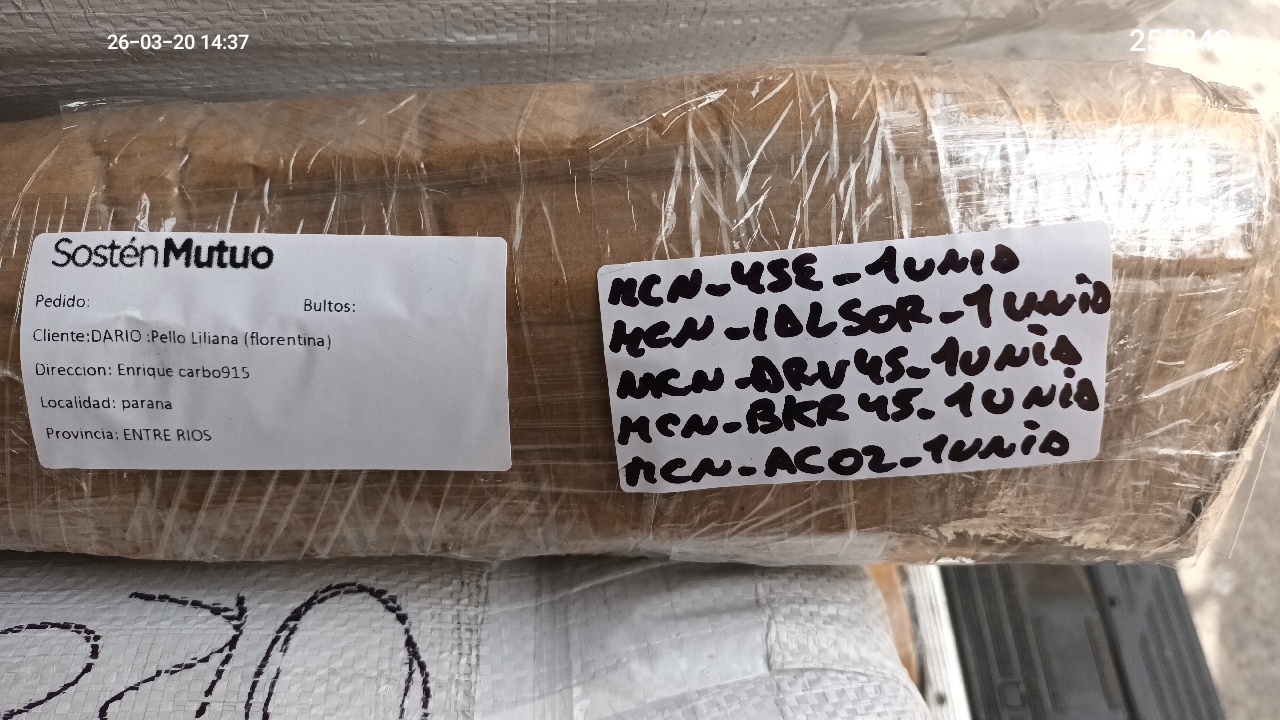 26-03-20 14:37
SosténMutuo
Pedido: Bultos:
Cliente:DARIO :Pello Liliana (florentina)
Direccion: Enrique carbo915
Localidad: parana
Provincia: ENTRE RIOS
MCN-YSE-1UNID
MCN-IDLSOR-1UNID
MCN-DRV45-1UNID
MCN-BKR45-1UNID
MCN-AC02-1UNID